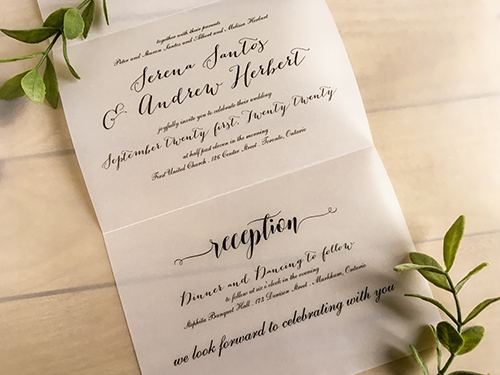 together with their parents
Peter and Sharon Santos and Albert and Melissa Herbert
Serena Santos
& Andrew Herbert
joyfully invite you to celebrate their wedding
September twenty first, Twenty twenty
at half past eleven in the morning
First United Church . 126 Center Street . Toronto, Ontario
reception
Dinner and Dancing to follow
to follow at six o'clock in the evening
Banquet Hall . 175 Denison Street . Markham, Ontario
we look forward to celebrating with you